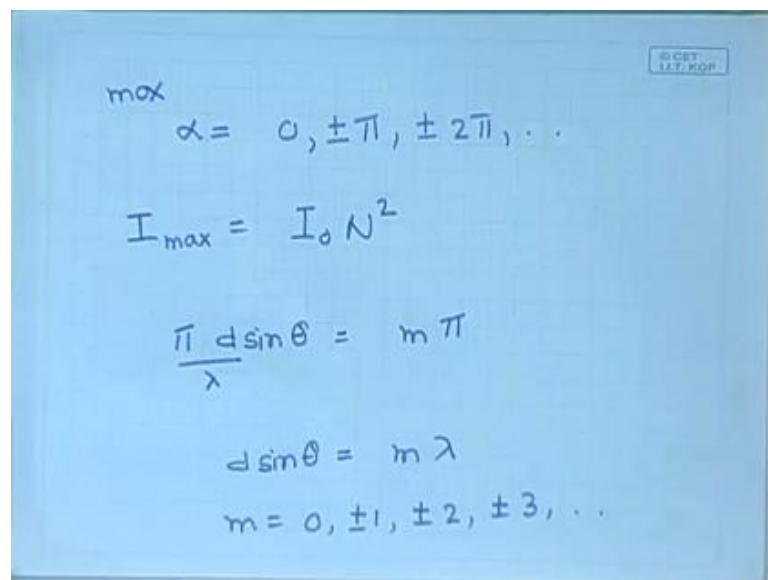 © CET
I.I.T. KGP
max
α = 0, ±π, ± 2π, . .
I max = I₀ N²
π d sin θ = m π
λ
d sin θ = m λ
m = 0, ±1, ± 2, ± 3, . .